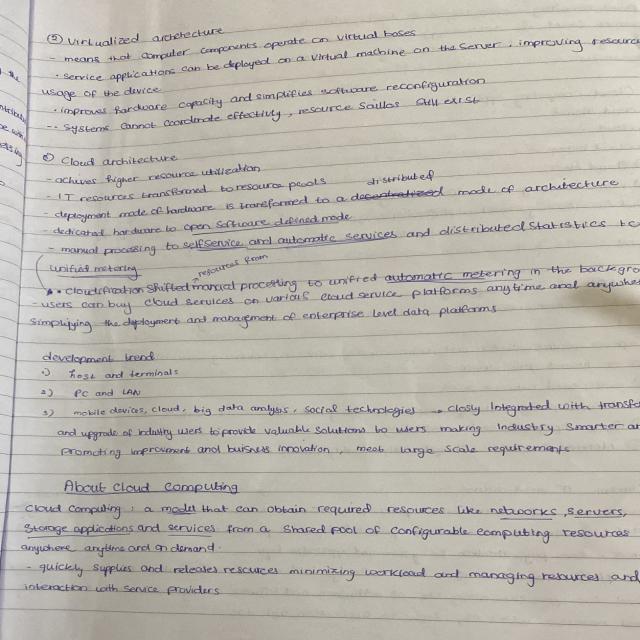 ⑤ Virtualized architecture
- means that computer components operate on virtual bases
· service applications can be deployed on a virtual machine on the server, improving resourc
usage of the device
· improves hardware capacity and simplifies software reconfiguration
- systems cannot coordinate effectivly, resource Saillos still exist
⑥ Cloud architecture
- achives higher resource utilization
- IT resources transformed to resource pools
distributed
- deployment mode of hardware is transformed to a decentralized mode of architecture
- dedicated hardware to open software defined mode
- manual processing to selfservice and automatic services and distributed statistics to
unified metering
resources from
· Cloudification shifted manual processing to unified automatic metering in the backgro
- users can buy cloud services on various cloud service platforms anytime and anywhere
Simplifying the deployment and management of enterprise level data platforms
development trend
1) host and terminals
2) PC and LAN
3) mobile devices, cloud, big data analysis, social technologies closly integrated with transfo
and upgrade of industry users to provide valuable solutions to users making industry smarter an
promoting improvment and buisness innovation, meet large scale requirements
About Cloud Computing
Cloud computing : a model that can obtain required resources like networks, servers,
storage applications and services from a shared pool of configurable computing resources
anywhere anytime and on demand.
- quickly supplies and releases resources minimizing workload and managing resources and
interaction with service providers